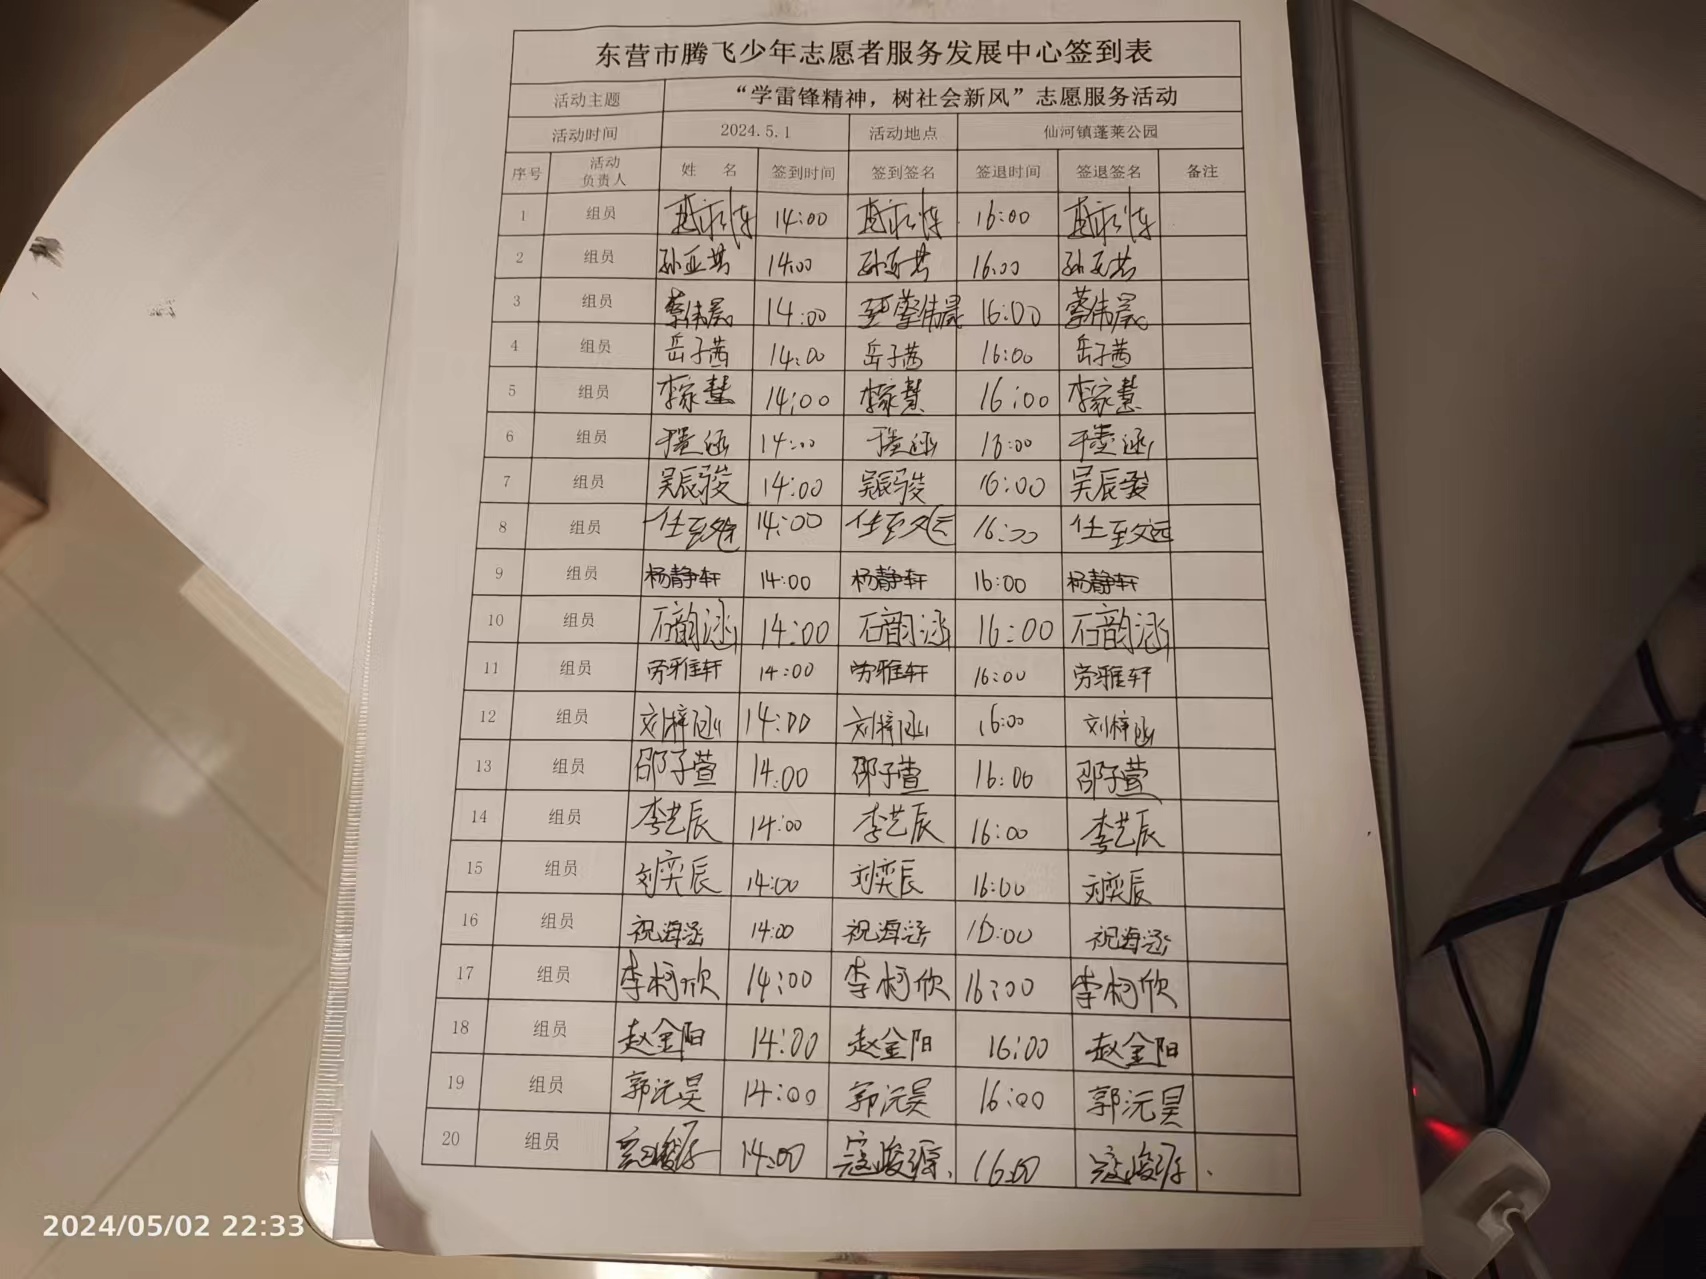 东营市腾飞少年志愿者服务发展中心签到表
活动主题 “学雷锋精神，树社会新风”志愿服务活动
活动时间 2024.5.1 活动地点 仙河镇蓬莱公园
序号 活动负责人 姓 名 签到时间 签到签名 签退时间 签退签名 备注
1 组员 14:00 16:00
2 组员 孙亚茹 14:00 孙亚茹 16:00 孙亚茹
3 组员 14:00 16:00
4 组员 岳子茜 14:00 岳子茜 16:00 岳子茜
5 组员 李家慧 14:00 李家慧 16:00 李家慧
6 组员 14:00 16:00
7 组员 吴辰骏 14:00 吴辰骏 16:00 吴辰骏
8 组员 任至文远 14:00 任至文远 16:00 任至文远
9 组员 杨静轩 14:00 杨静轩 16:00 杨静轩
10 组员 石韵涵 14:00 石韵涵 16:00 石韵涵
11 组员 劳雅轩 14:00 劳雅轩 16:00 劳雅轩
12 组员 刘梓涵 14:00 刘梓涵 16:00 刘梓涵
13 组员 邵子萱 14:00 邵子萱 16:00 邵子萱
14 组员 李艺辰 14:00 李艺辰 16:00 李艺辰
15 组员 刘奕辰 14:00 刘奕辰 16:00 刘奕辰
16 组员 祝海涵 14:00 祝海涵 16:00 祝海涵
17 组员 李柯欣 14:00 李柯欣 16:00 李柯欣
18 组员 赵金阳 14:00 赵金阳 16:00 赵金阳
19 组员 郭沅昊 14:00 郭沅昊 16:00 郭沅昊
20 组员 14:00 寇峻源 16:00 寇峻源
2024/05/02 22:33